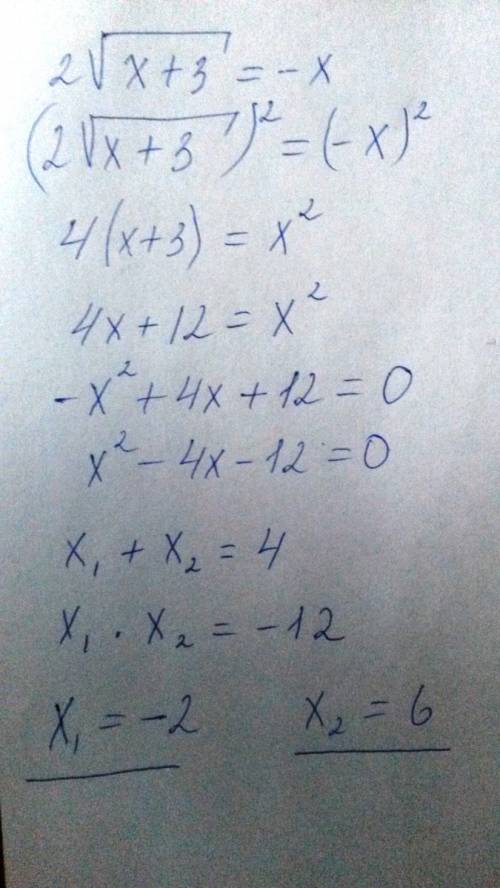 2√(x+3) = -x
(2√(x+3))² = (-x)²
4(x+3) = x²
4x+12 = x²
-x²+4x+12=0
x²-4x-12=0
x₁ + x₂ = 4
x₁ · x₂ = -12
x₁ = -2 x₂ = 6